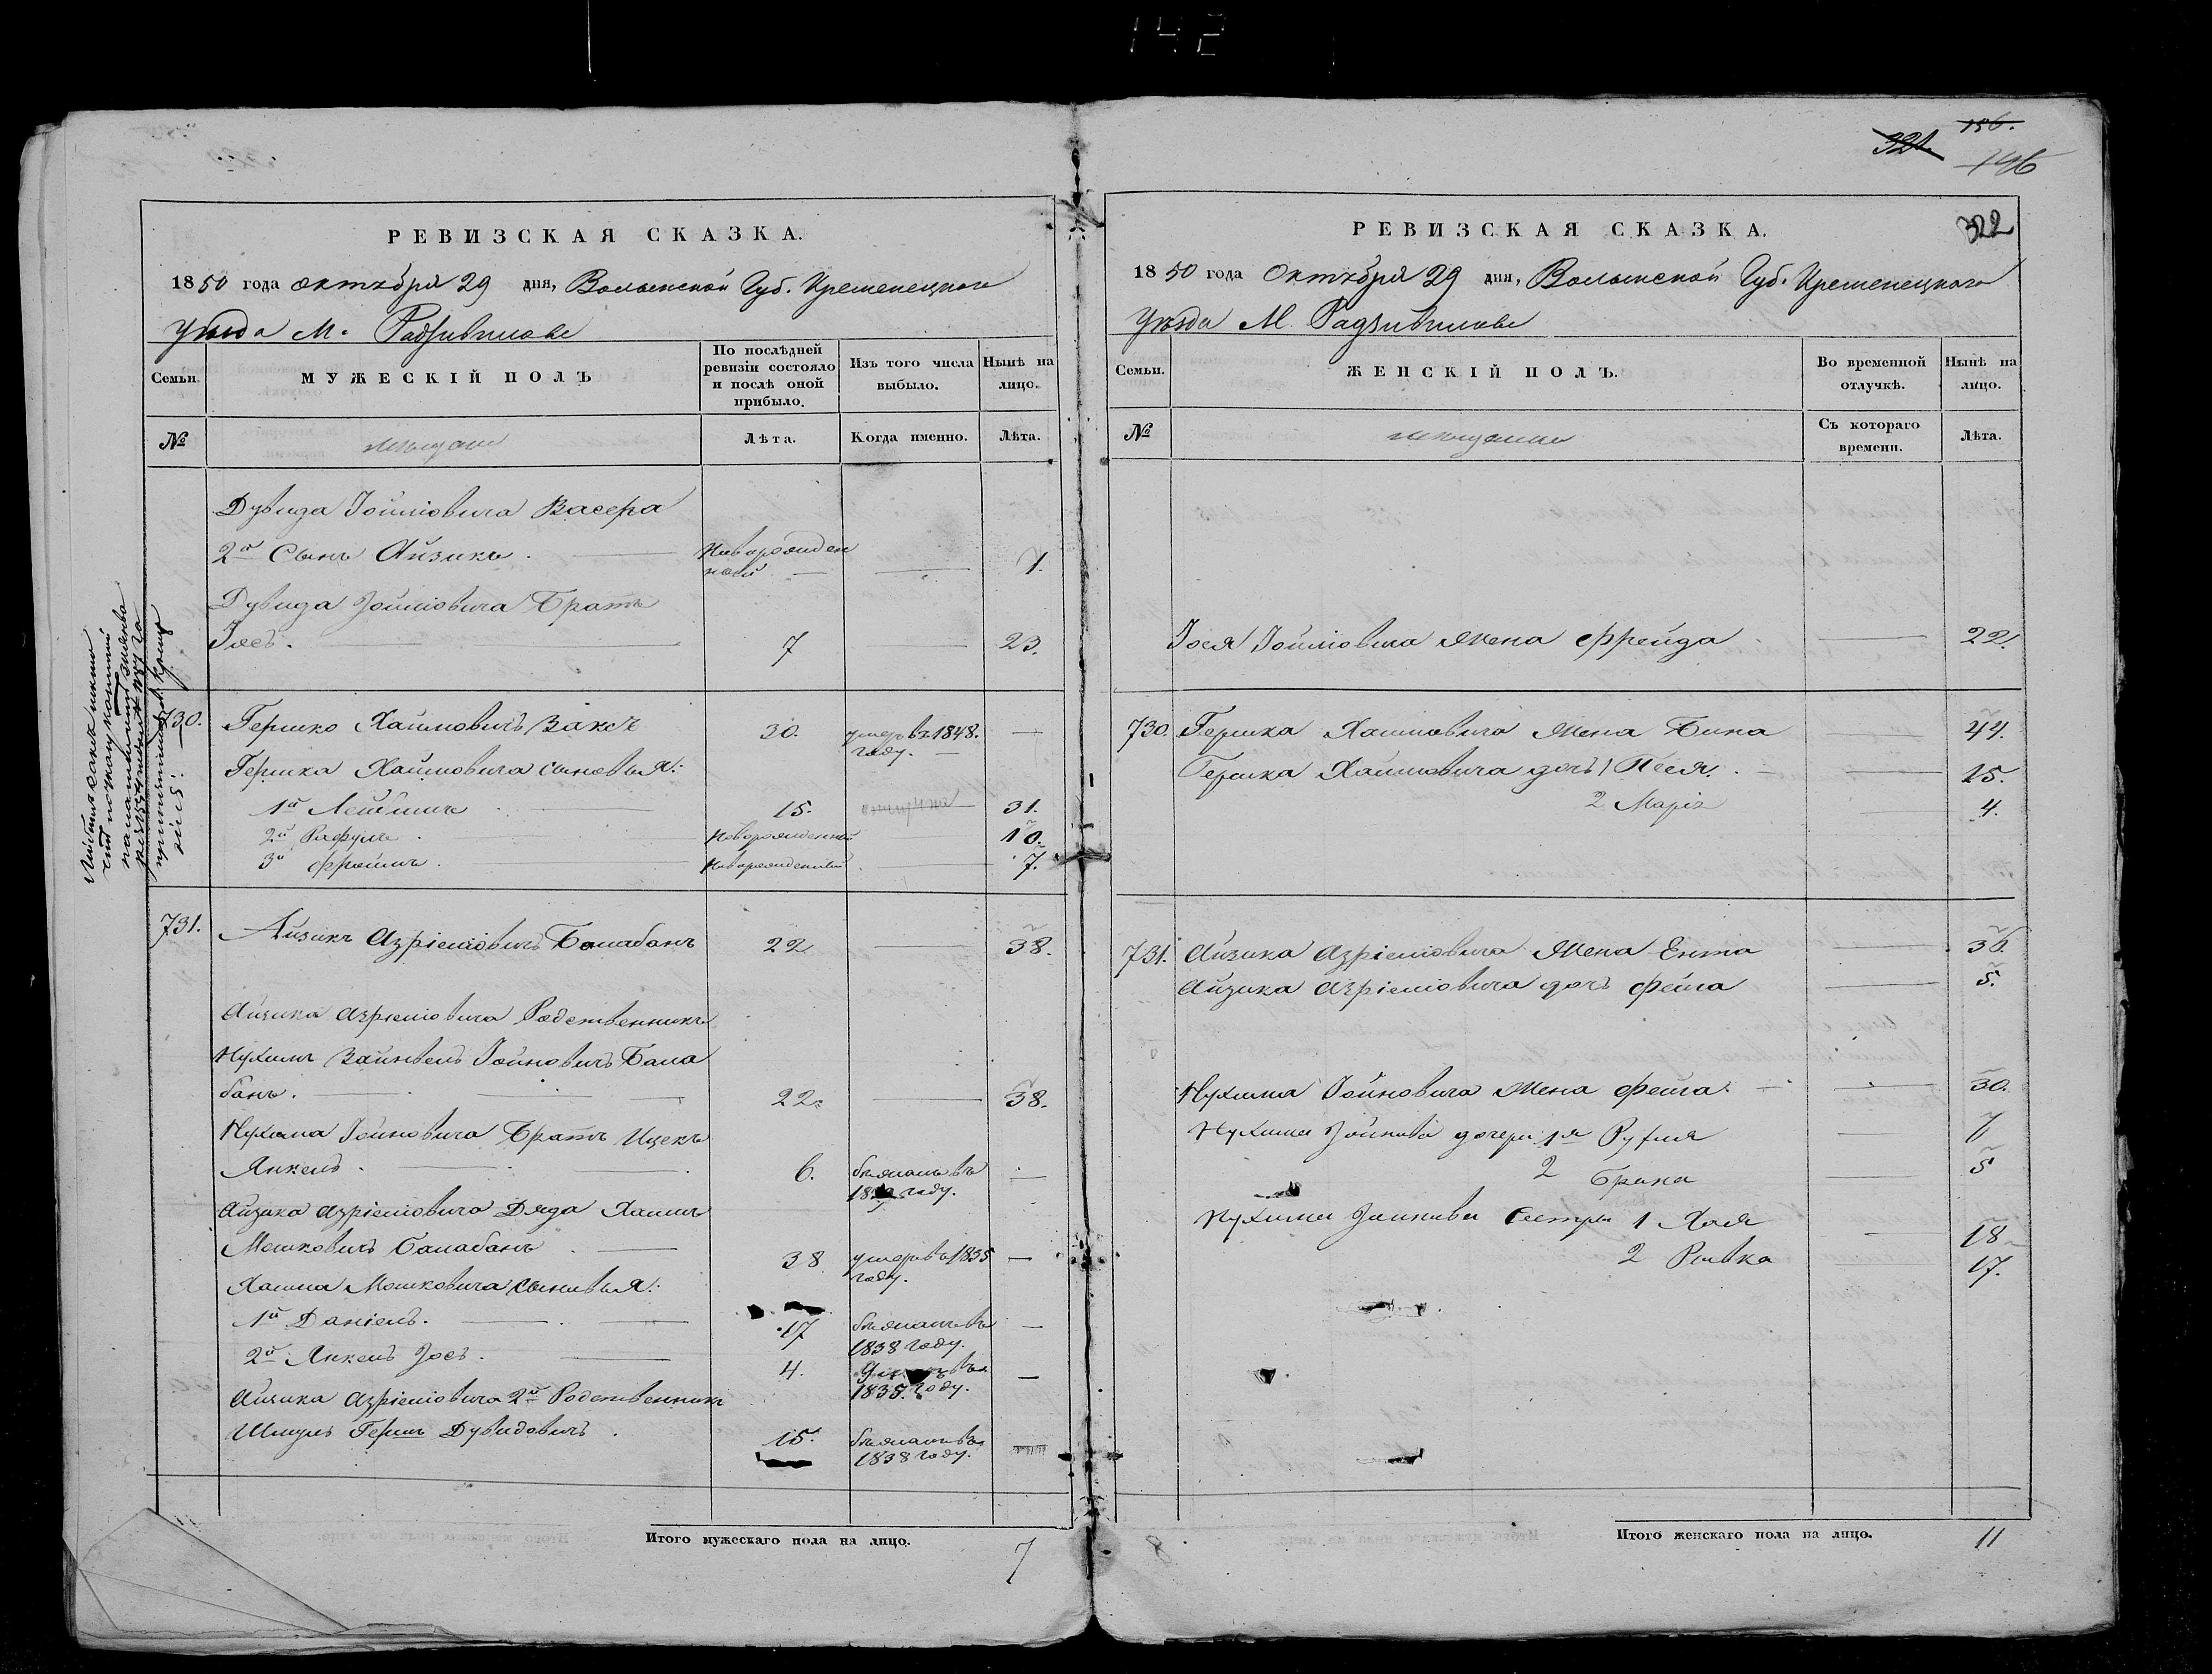 142
РЕВИЗСКАЯ СКАЗКА.
1850 года октября 29 дня, Волынской Губ. Кременецкого
Уезда М. Радзивилове
Семьи.
МУЖЕСКІЙ ПОЛЪ
По послѣдней ревизіи состояло и послѣ оной прибыло.
Изъ того числа выбыло.
Нынѣ на лицо.
№
мещане
Лѣта.
Когда именно.
Лѣта.
Дувида Іойлiовича Васера
2й Сынъ Айзикъ. Новорожден
ный 7.
Дувида Іойлiовича Братъ
Іосъ. 7 23.
730. Гершко Хаимовичъ Ваксъ 30. умеръ въ 1848.
году.
Гершка Хаимовича сыновья:
1й Лейбишъ 15. 31.
2й Рафуль Новорожденный 10.
3й Фроимъ. Новорожденный 7.
731. Айзикъ Азрiелiовичъ Балабанъ 22 38.
Айзика Азрiелiовича Родственникъ
Нухимъ Зайнвель Іойновичъ Бала
банъ. 22. 38.
Нухима Іойновича Братъ Ицекъ
Янкель. 6. бежалъ въ
году.
Айзика Азрiелiовича Дядя Хаимъ
Мошковичъ Балабанъ 38 умеръ въ 1835
году.
Хаима Мошковича сыновья:
1й Данiель. 17 бежалъ въ
1838 году.
2й Янкель Іосъ. 4. въ
1835. году.
Айзика Азрiелiовича 2й Родственникъ
Шмуль Гершъ Дувидовичъ. 15. бежалъ въ
1838 году.
Итого мужескаго пола на лицо. 7
321. 156.
196
322
РЕВИЗСКАЯ СКАЗКА.
1850 года Октября 29 дня, Волынской Губ. Кременецкого
Уезда М. Радзивилове
Семьи.
ЖЕНСКІЙ ПОЛЪ.
Во временной отлучкѣ.
Нынѣ на лицо.
№
мещанки
Съ котораго времени.
Лѣта.
Іося Іойлiовича Жена Фрейда 22.
730. Гершка Хаимовича Жена Бина 44.
Гершка Хаимовича дочъ 1 Песя. 15.
2 Марiя 4.
731. Айзика Азрiелiовича Жена Ента 36.
Айзика Азрiелiовича дочъ Фейга 5.
Нухима Іойновича Жена Фейга. 30.
Нухима Іойнова дочери 1я Рухля 6
2 Брана 5
Нухима Іойнова Сестры 1 Хая 18
2 Ривка 17.
Итого женскаго пола на лицо. 11